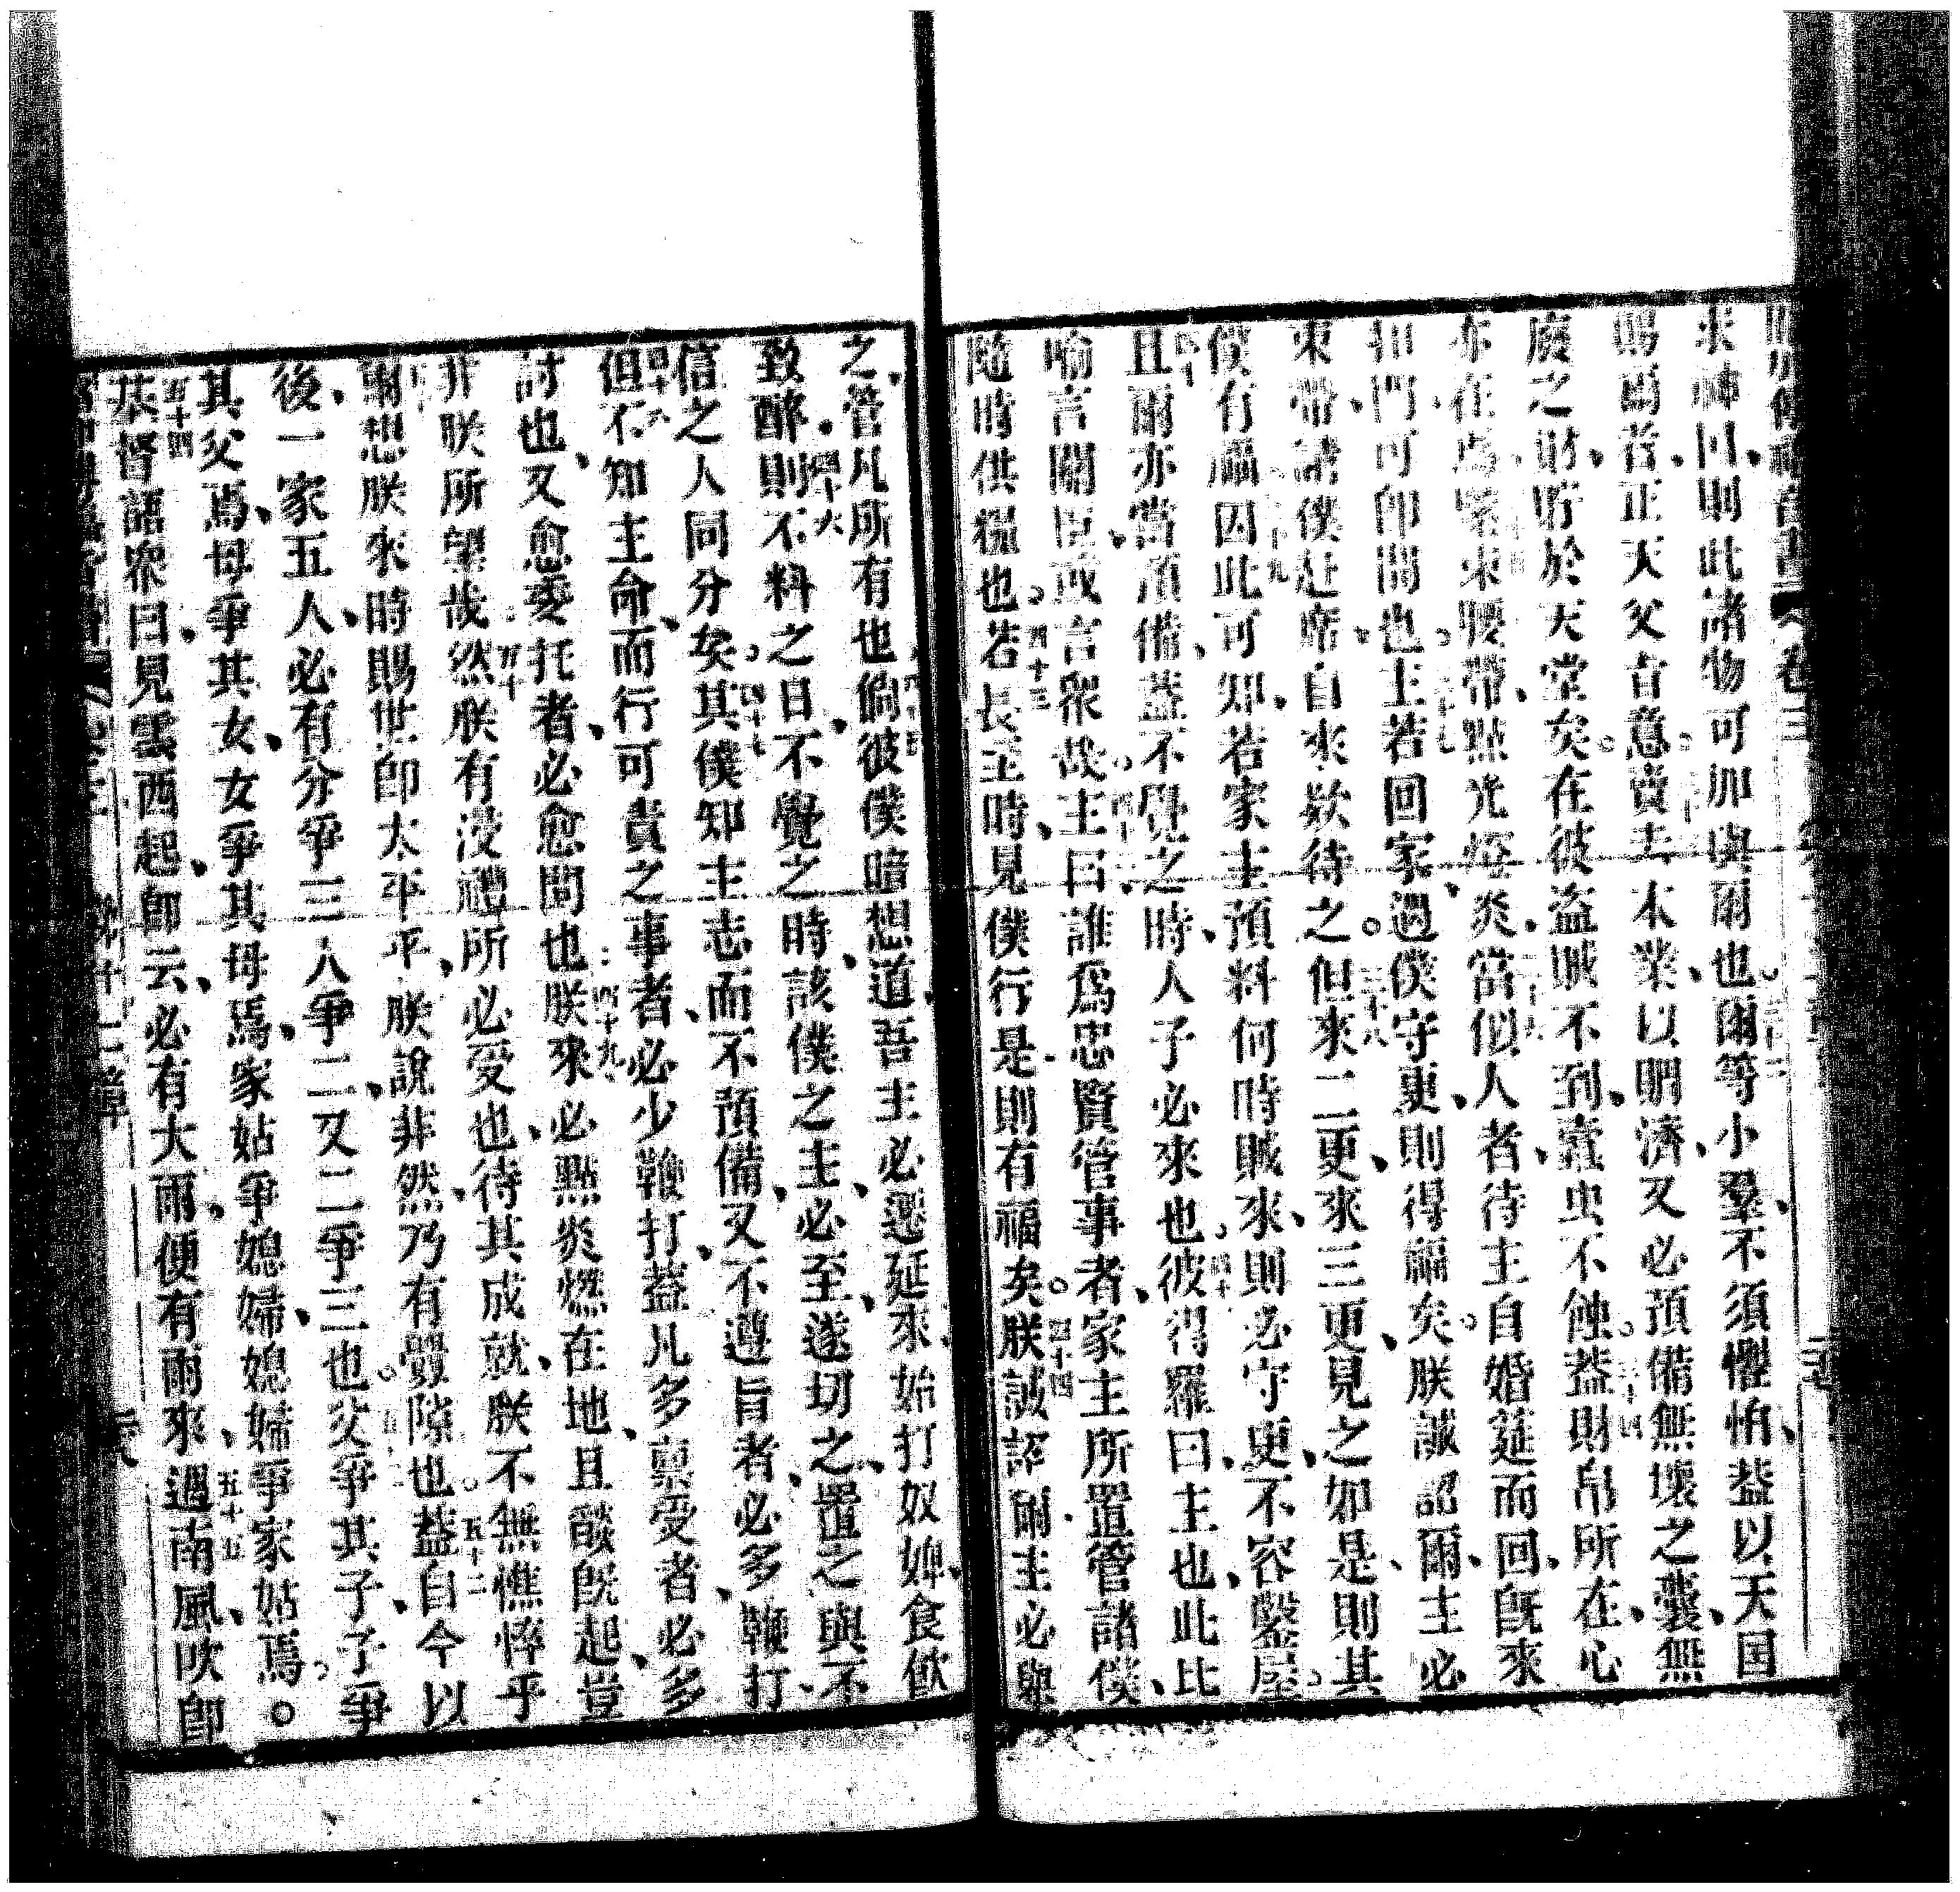 求神国則此諸物可加與爾也三十二爾等小羣不須懼怕葢以天国
賜爾者正天父吉意三十三賣去本業以賙濟又必預備無壞之囊無
廢之財貯於天堂矣在彼盜賊不到蠹虫不蝕三十四葢財帛所在心
亦在焉三十五緊束腰帶點光燈炎三十六當似人者待主自婚筵而回旣來
扣門可卽開也三十七主若回家遇僕守更則得福矣朕誠認爾主必
束帶請僕赴席自來欵待之三十八但來二更來三更見之如是則其
僕有福三十九因此可知若家主預料何時賊來則必守更不容鑿屋
四十且爾亦當預備葢不覺之時人子必來也四十一彼得羅曰主也此比
喻言關臣或言衆哉四十二主曰誰爲忠賢管事者家主所置管諸僕
隨時供糧也四十三若長主時見僕行是則有福矣四十四朕誠認爾主必與
之管凡所有也四十五倘彼僕暗想道吾主必遲延來始打奴婢食飲
致醉四十六則不料之日不覺之時該僕之主必至遂切之置之與不
信之人同分矣四十七其僕知主志而不預備又不遵旨者必多鞭打
四十八但不知主命而行可責之事者必少鞭打葢凡多禀受者必多
討也又愈委托者必愈問也四十九朕來必點炎燃在地且燄旣起豈
非朕所望哉五十然朕有浸禮所必受也待其成就朕不無憔悴乎
爾想朕來時賜世卽太平乎朕說非然乃有釁隙也五十二葢自今以
後一家五人必有分爭三人爭二又二爭三也五十三父爭其子子爭
其父焉母爭其女女爭其母焉家姑爭媳婦媳婦爭家姑焉
五十四基督語衆曰見雲西起卽云必有大雨便有雨來五十五遇南風吹卽